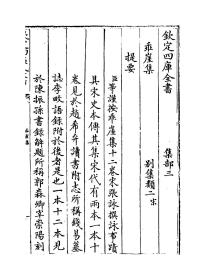 欽定四庫全書
集部三
乖崖集
別集類二宋
提要
臣等謹按乖崖集十二卷宋張詠撰詠事蹟
具宋史本傳其集宋代有兩本一本十
卷見於趙希弁讀書附志所稱錢易墓
誌李畋語錄附於後者是也一本十二本見
於陳振孫書錄解題所稱郭森卿宰崇陽刻